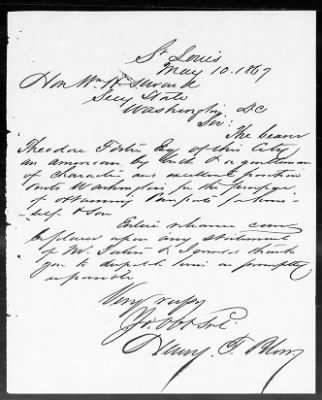 St Louis
May 10. 1867
Hon Wm H Seward
Secy State
Washington DC
Sir:
The bearer
Theodore Esq of this City,
an American by birth & a gentleman
of character and excellent position
visits Washington for the purpose
of obtaining Passports for him-
self & Son
Entire reliance can
be placed upon any statement
of Mr. & I would thank
you to him as promptly
as possible
Very respy
Yr Obt Svt
Henry T. Blow